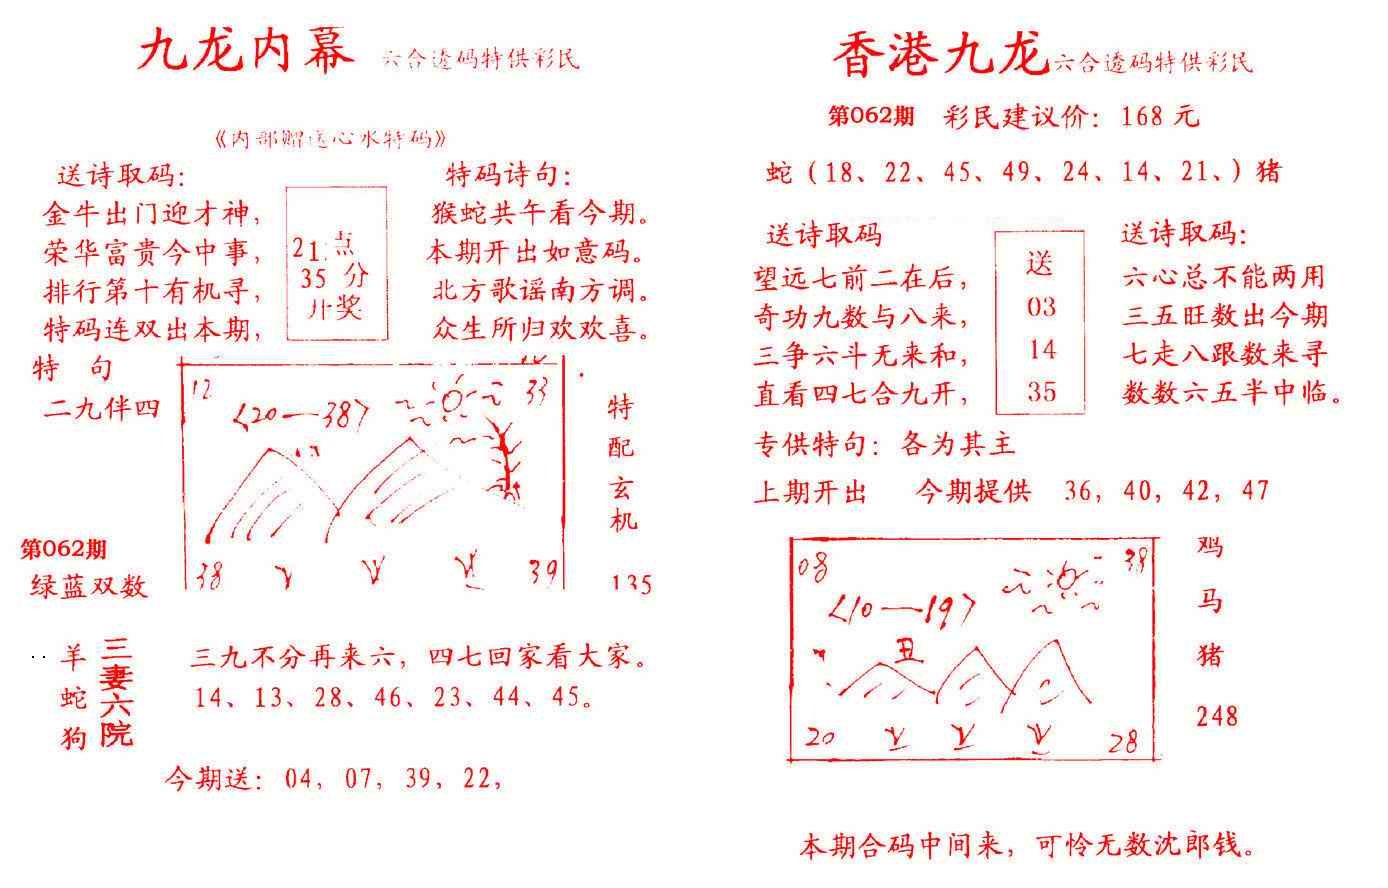 九龙内幕 六合透码特供彩民
《内部赠送心水特码》
送诗取码：
金牛出门迎才神，
荣华富贵今中事，
排行第十有机寻，
特码连双出本期，
21点
35分
开奖
特码诗句：
猴蛇共午看今期。
本期开出如意码。
北方歌谣南方调。
众生所归欢欢喜。
特 句
二九伴四
第062期
绿蓝双数
12
33
〈20—38〉
38
39
特
配
玄
机
135
羊
蛇
狗
三妻六院
三九不分再来六，四七回家看大家。
14、13、28、46、23、44、45。
今期送：04，07，39，22，
香港九龙 六合透码特供彩民
第062期 彩民建议价：168元
蛇（18、22、45、49、24、14、21、）猪
送诗取码
望远七前二在后，
奇功九数与八来，
三争六斗无来和，
直看四七合九开，
送
03
14
35
送诗取码：
六心总不能两用
三五旺数出今期
七走八跟数来寻
数数六五半中临。
专供特句：各为其主
上期开出 今期提供 36，40，42，47
08
38
〈10—19〉
丑
20
28
鸡
马
猪
248
本期合码中间来，可怜无数沈郎钱。